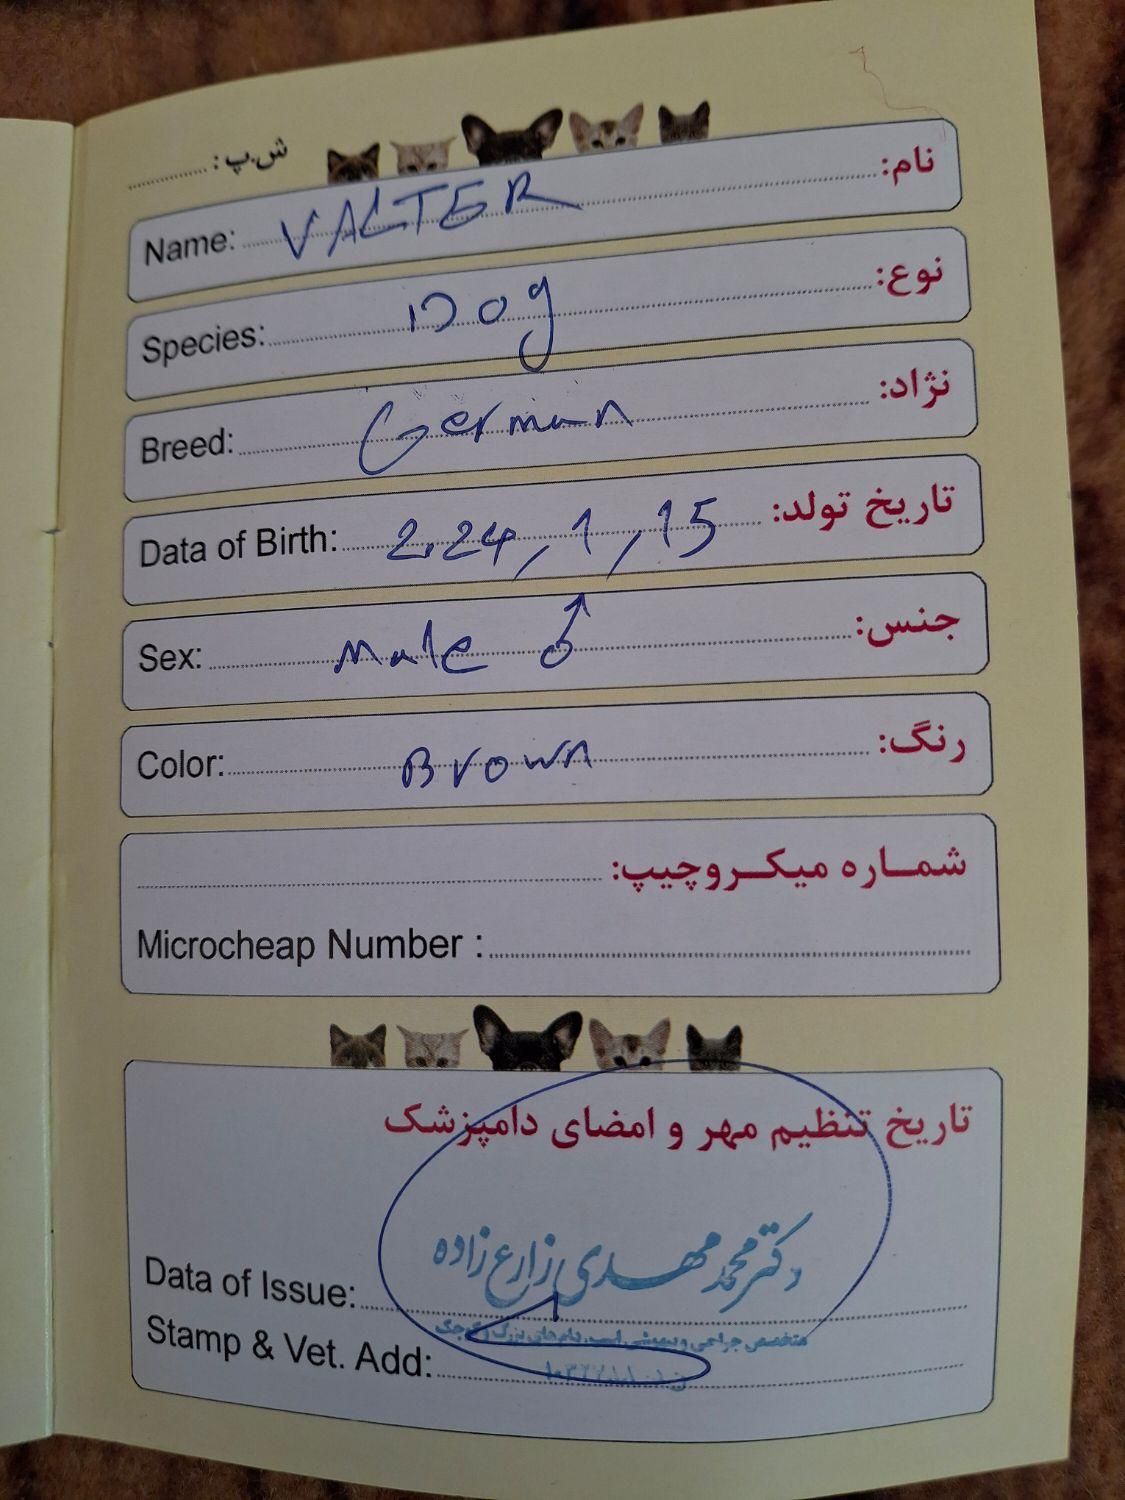 ش.پ:
Name: VALTER نام:
Species: Dog نوع:
Breed: German نژاد:
Data of Birth: 2.24, 1, 15 تاریخ تولد:
Sex: Male ♂ جنس:
Color: Brown رنگ:
شماره میکروچیپ:
Microcheap Number :
تاریخ تنظیم مهر و امضای دامپزشک
دکتر محمد مهدی زارع زاده
Data of Issue:
متخصص جراحی و بیهوشی اسب، دام‌های بزرگ و کوچک
Stamp & Vet. Add: